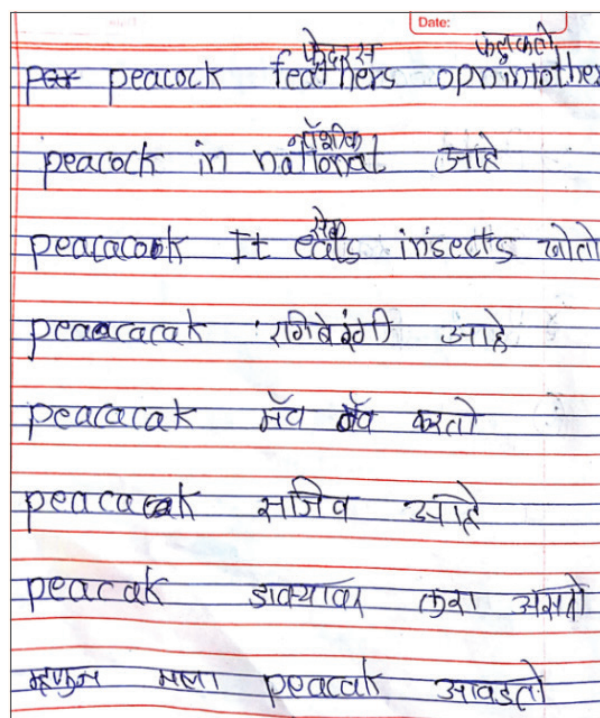 Date:
फेदरस फडकतो
peacock feathers opnintother
नॅशनल
peacock in national आहे
peacacook It eats insects खातो
peaacacak रंगिबेरंगी आहे
peacacak मॅव मॅव करतो
peacacak सजिव आहे
peacak डोक्यावर तुरा असतो
म्हणुन मला peacak आवडतो